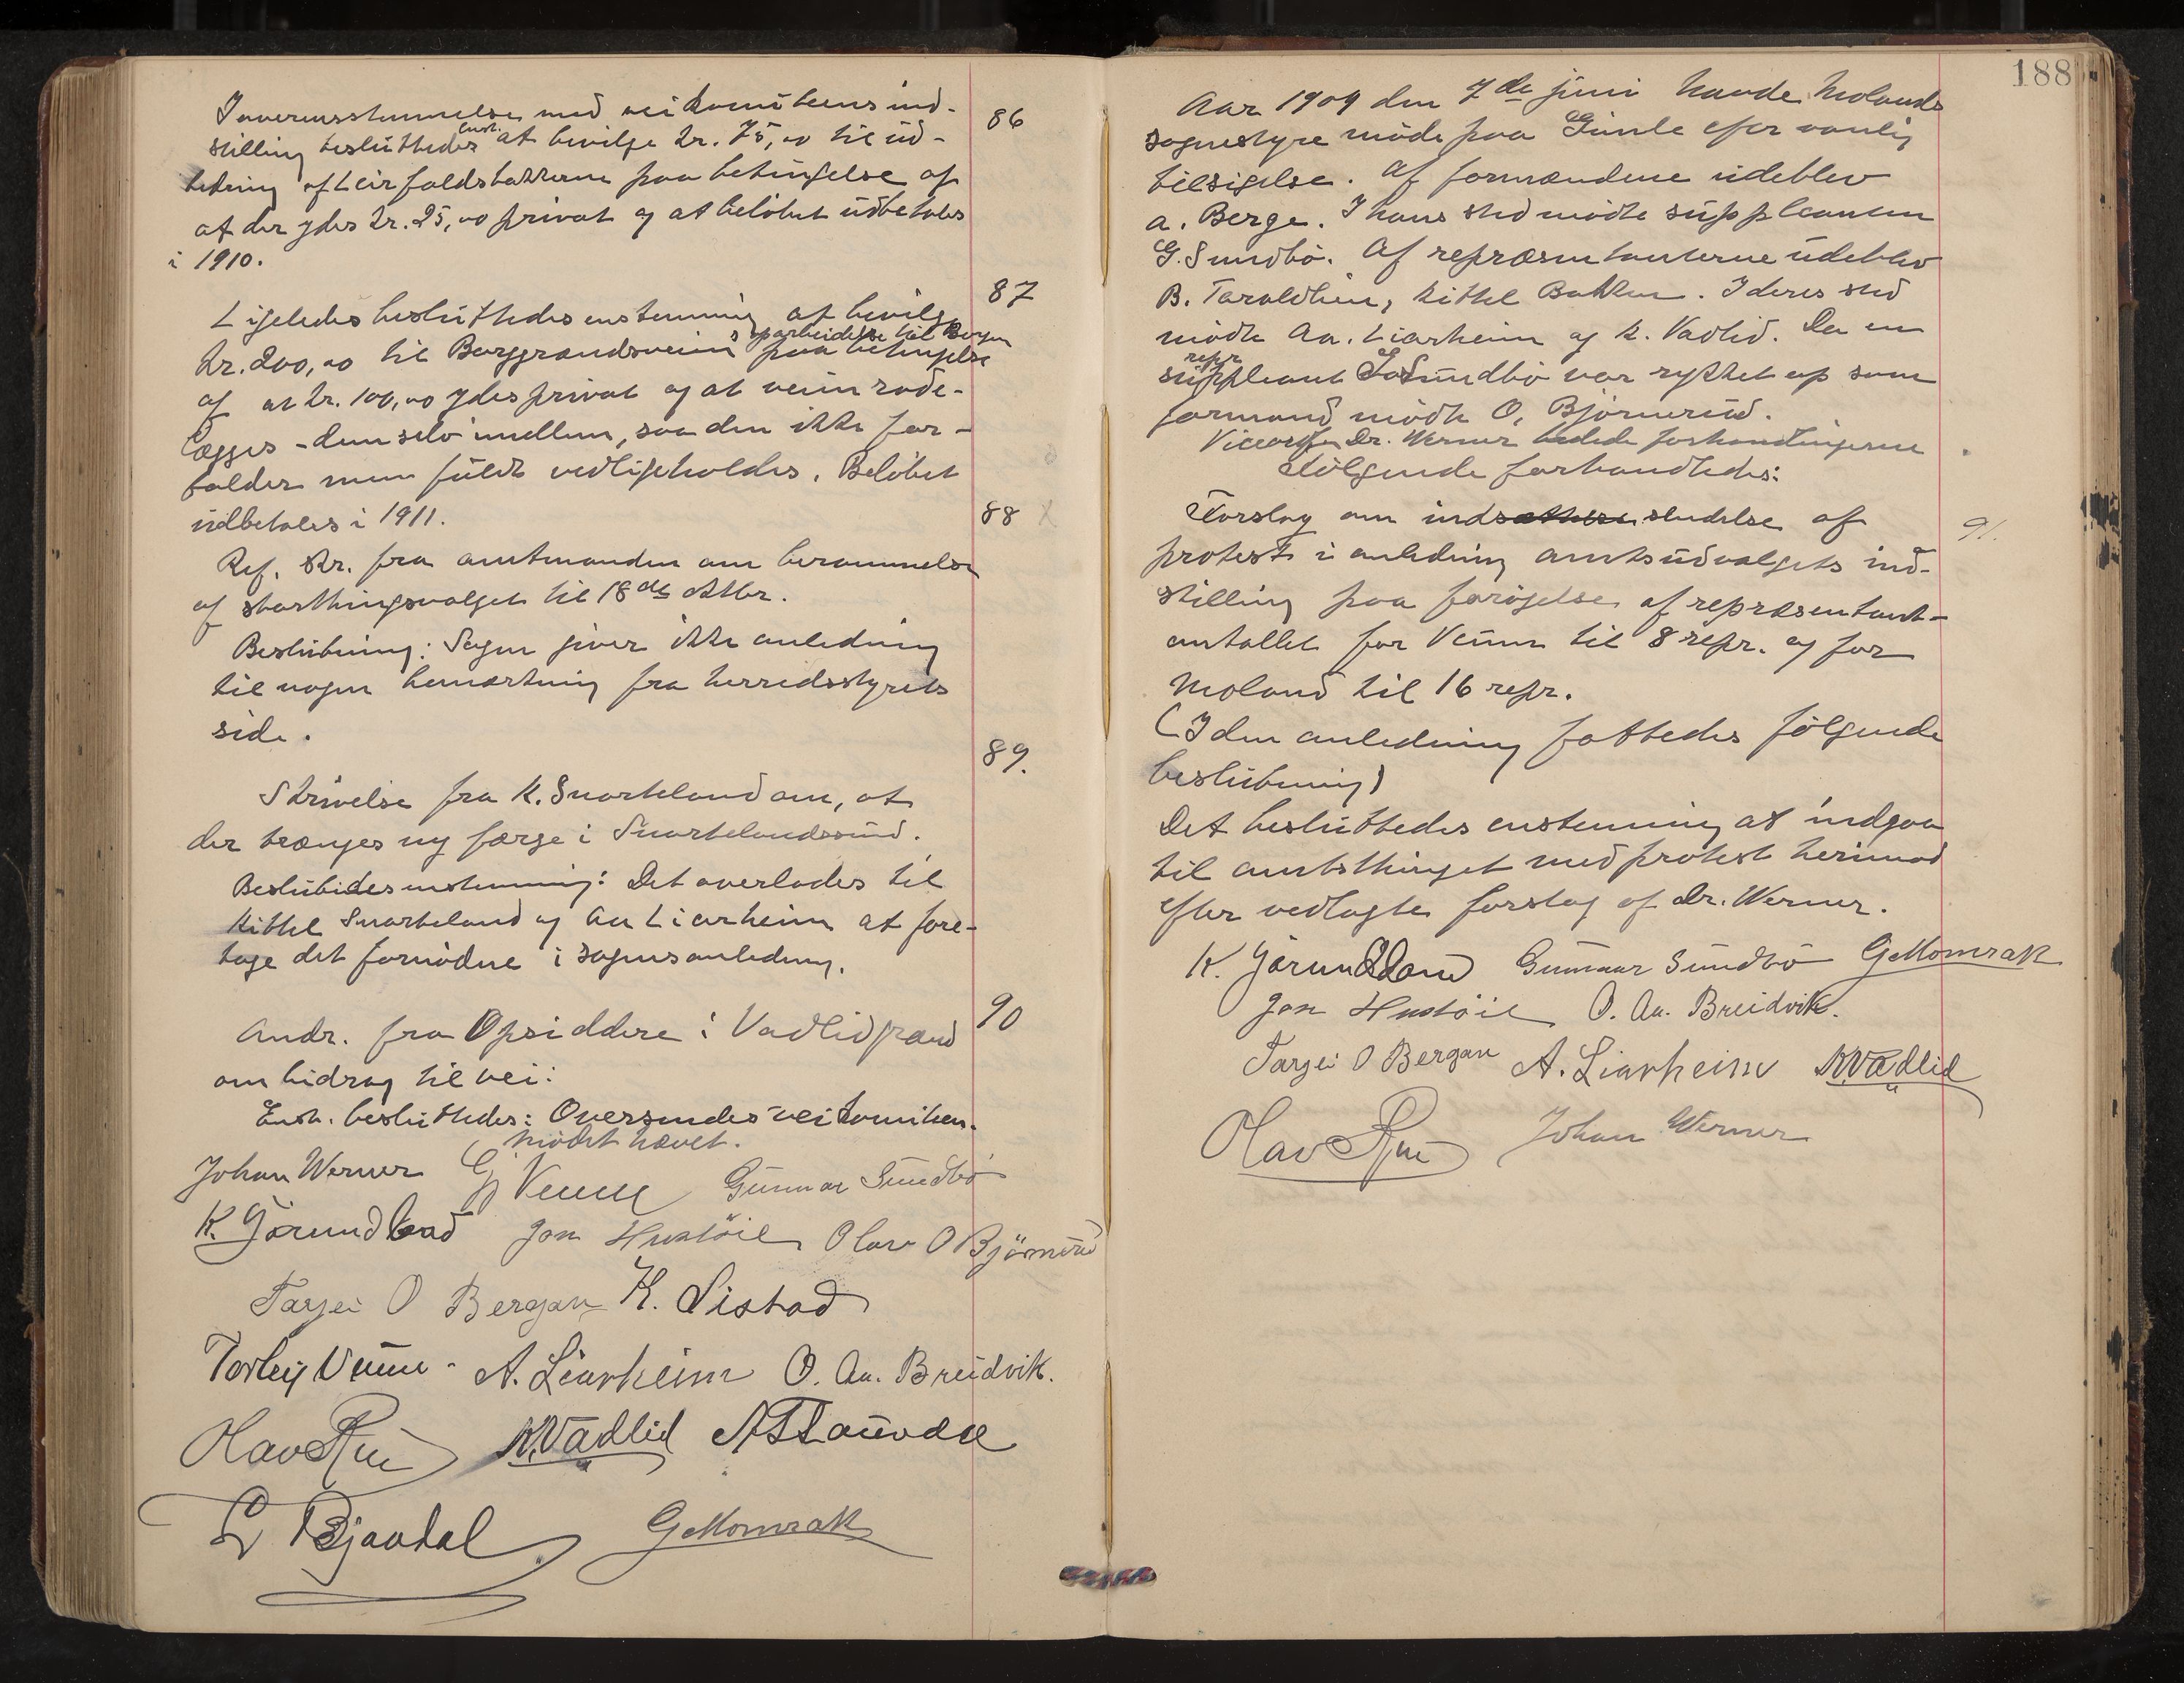 I overensstemmelse med veikomiteens ind-
stilling besluttedes enst. at bevilge kr. 75,00 til ud-
bedring af Leirfaldsbakkerne paa betingelse af
at der ydes kr. 25,00 privat og at beløbet udbetales
i 1910.
86
Ligeledes besluttedes enstemmig at bevilge
kr. 200,00 til Borggrændsveiens oparbeidelse til Bergan paa betingelse
af at kr. 100,00 ydes privat og at veien rode-
lægges - dem selv imellem, saa den ikke for-
falder men fuldt vedligeholdes. Beløbet
udbetales i 1911.
87
Ref. skr. fra amtmanden om berammelse
af storthingsvalget til 18de oktbr.
Beslutning: Sagen giver ikke anledning
til nogen bemærkning fra herredsstyrets
side.
88
Skrivelse fra K. Snarteland om, at
der trænges ny færge i Snartelandssund.
Beslutedes enstemmig: Det overlades til
Kittel Snarteland og Au Liarheim at fore-
tage det fornødne i sagens anledning.
89.
Andr. fra Opsiddere i Vadlidgrænd
om bidrag til vei:
Enst. besluttedes: Oversendes veikomiteen.
Mødet hævet.
90
Johan Werner G Veum Gunnar Sundbø
K. Gørundland Jon Hustöil Olav O Björnerud
Tarjei O Bergan K. Listad
Torleif Veum. A. Liarheim O. Au. Breidvik.
Olav Rui K. Vadlid
Bjaadal G Momrak
188
Aar 1909 den 7de juni havde Molands
sognestyre møde paa Gimle efter vanlig
tilsigelse. Af formændene udeblev
A. Berge. I hans sted mødte suppleanten
G. Sundbø. Af repræsentanterne udeblev
B. Taraldlien, Kittel Bakken. I deres sted
mødte Au. Liarheim og K. Vadlid. Da en
repr suppleant G Sundbø var rykket op som
formand mødte O. Bjørnerud.
Viceordf. Dr. Werner ledede forhandlingerne
Følgende forhandledes:
Forslag om indsættelse sendelse af
protest i anledning amtsudvalgets ind-
stilling paa forøgelse af repræsentant-
antallet for Veum til 8 repr. og for
Moland til 16 repr.
(I den anledning fattedes følgende
beslutning)
Det besluttedes enstemmig at indgaa
til amtsthinget med protest herimod
efter vedlagte forslag af Dr. Werner.
91.
K. Gørundland Gunnar Sundbø G Momrak
Jon Hustöil O. Au. Breidvik.
Tarjei O Bergan A. Liarheim K. Vadlid
Olav Rui Johan Werner